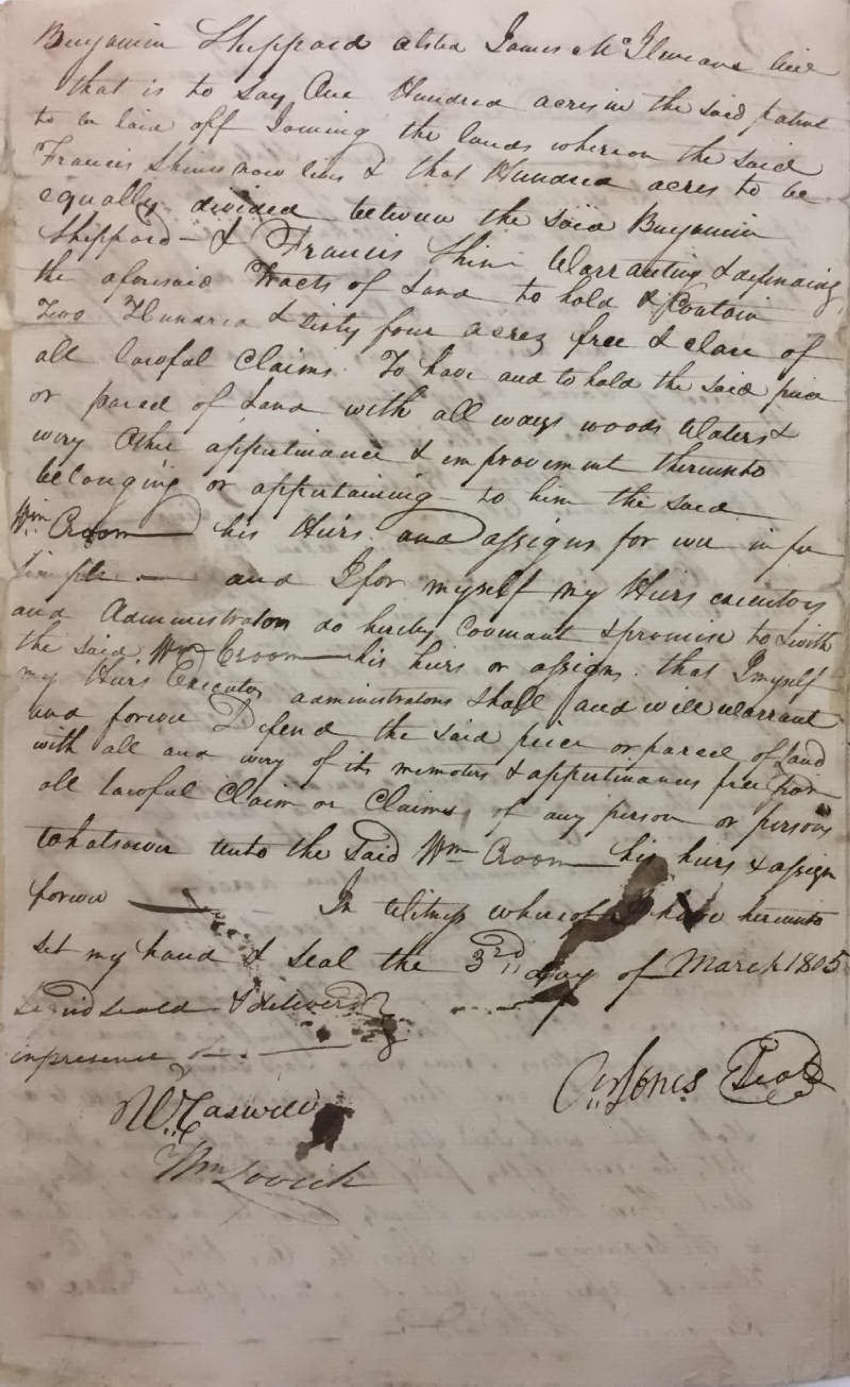 Benjamin Sheppard James McIlweans line
that is to say One Hundred acres in the said patent
to be laid off Joining the lands whereon the said
Francis Shine now lives & that Hundred acres to be
equally divided between the said Benjamin
Sheppard & Francis Shine Warranting & defending
the aforesaid Tracts of Land to hold & Contain
Two Hundred & Sixty four acres free & clear of
all lawful Claims. To have and to hold the said piece
or parcel of Land with all ways woods Waters &
every Other appurtinance & improvement thereunto
belonging or appertaining to him the said
Wm. Croom his Heirs and assigns for ever in fee
Simple — and I for myself my Heirs executors
and Administrators do hereby Covenant & promise to & with
the said Wm Croom his heirs or assigns that I myself
my Heirs Executors administrators shall and will warrant
and forever Defend the said piece or parcel of Land
with all and every of its & appurtinances free from
all lawful Claim or Claims of any person or persons
whatsoever unto the Said Wm Croom his heirs & assigns
forever — In Witness whereof I have hereunto
set my hand & seal the 3rd day of March 1805
Signd Seald & deliverd
in presence
W. Caswell
Jones Seal
Wm Lovick